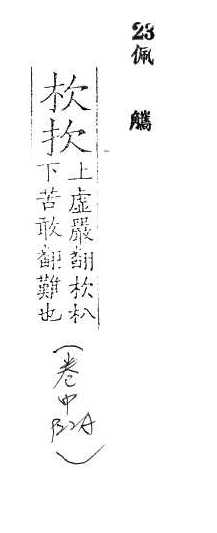 23 佩觿
杴扻
上虛嚴翻杴朳
下苦敢翻難也
(卷中